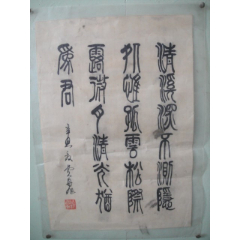 清溪深不測隱
處惟孤雲松際
露微月清光猶
爲君